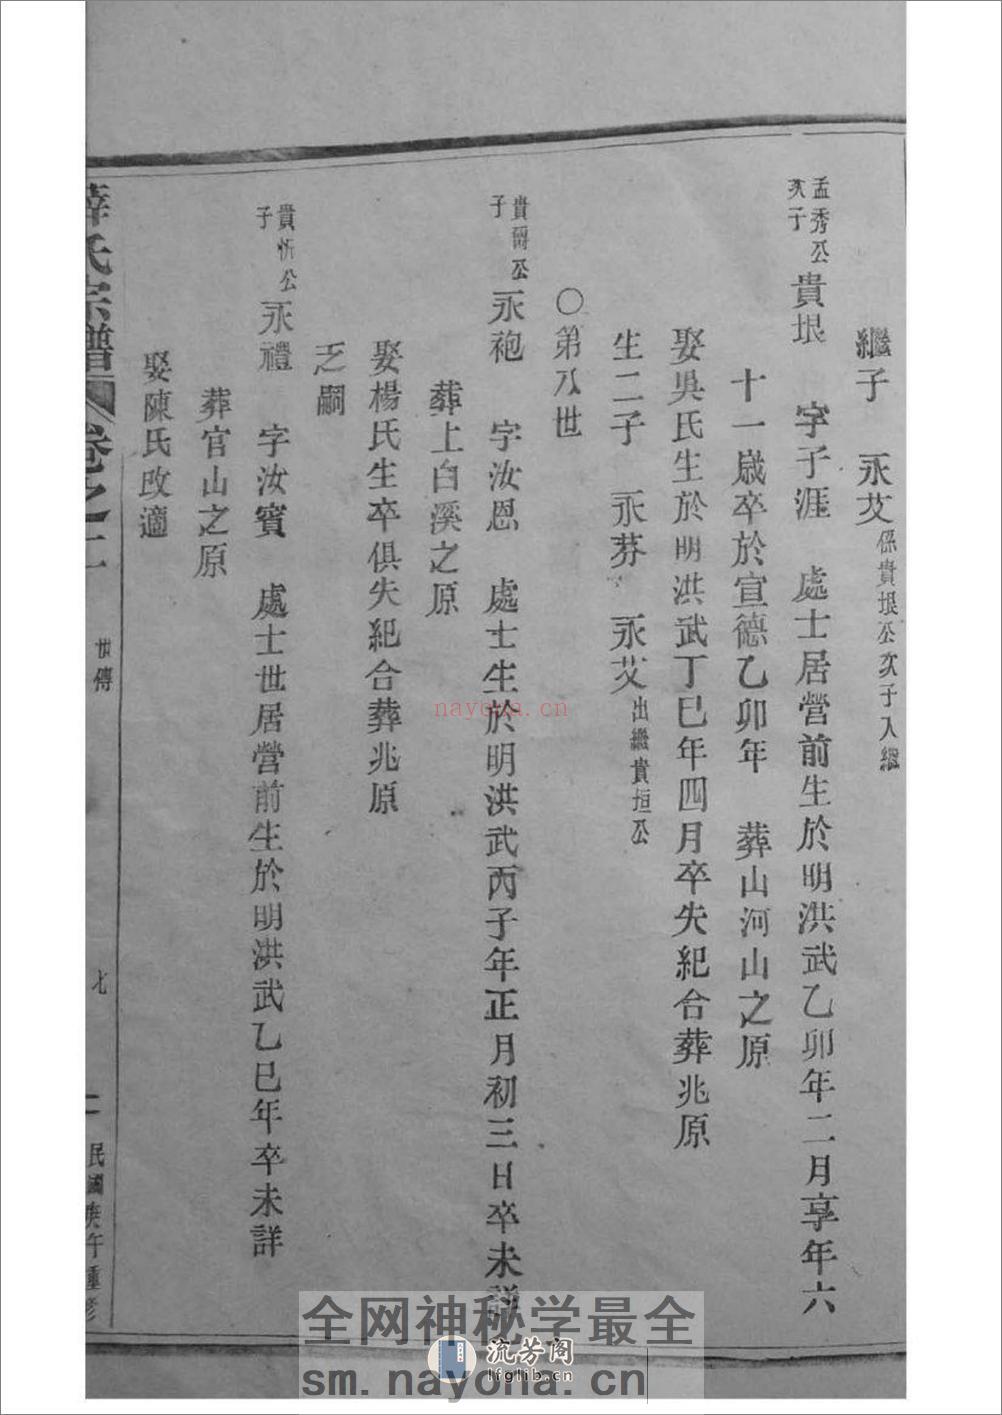 繼子 永艾係貴垠公次子入繼
孟秀公次子 貴垠 字子涯 處士居營前生於明洪武乙卯年二月享年六
十一歲卒於宣德乙卯年 葬山河山之原
娶吳氏生於明洪武丁巳年四月卒失紀合葬兆原
生二子 永芬 永艾出繼貴垣公
〇第八世
貴爾公子 永袍 字汝恩 處士生於明洪武丙子年正月初三日卒未詳
葬上白溪之原
娶楊氏生卒俱失紀合葬兆原
乏嗣
貴忻公子 永禮 字汝賓 處士世居營前生於明洪武乙巳年卒未詳
葬官山之原
娶陳氏改適
薛氏宗譜 卷之二 世傳 七 民國庚午重修
nayona.cn
全网神秘学最全
流芳阁
lfglib.cn
sm.nayona.cn